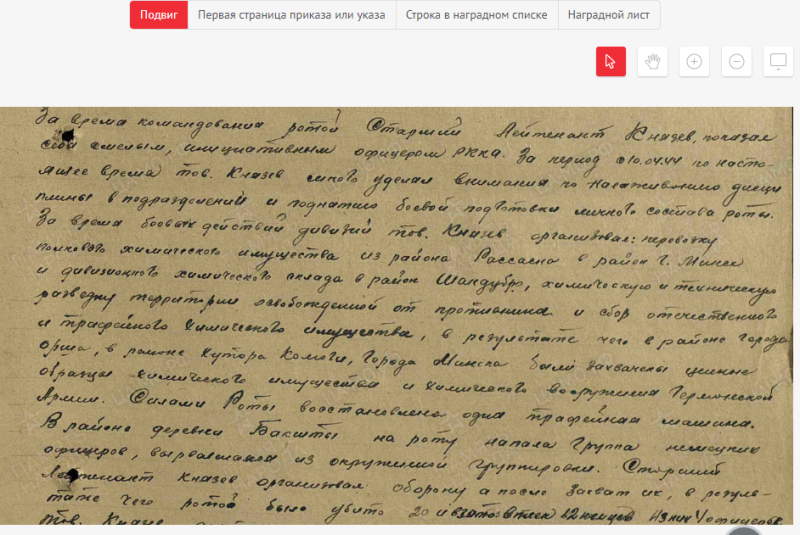 Подвиг
Первая страница приказа или указа
Строка в наградном списке
Наградной лист
За время командования ротой Старший Лейтенант Князев, показал
себя смелым, инициативным офицером РККА. За период с 10.04.44 по насто-
ящее время тов. Князев много уделял внимания по налаживанию дисци
плины в подразделении и поднятию боевой подготовки личного состава роты.
За время боевых действий дивизии тов. Князев организовал: перевозку
полкового химического имущества из района Рассасна в район г. Минск
и дивизионного химического склада в район Шандубр, химическую и техническую
разведку территории освобожденной от противника и сбор отечественного
и трофейного химического имущества, в результате чего в районе города
Орша, в районе хутора Комоги, города Минска были захвачены ценные
образцы химического имущества и химического вооружения Германской
Армии. Силами Роты восстановлена одна трофейная машина.
В районе деревни Бакшты на роту напала группа немецких
офицеров, вырвавшаяся из окруженной группировки. Старший
Лейтенант Князев организовал оборону а после захват их, в резуль-
тате чего ротой было убито 20 и взято в плен 12 немцев из них 4 офицеров
тов. Князев